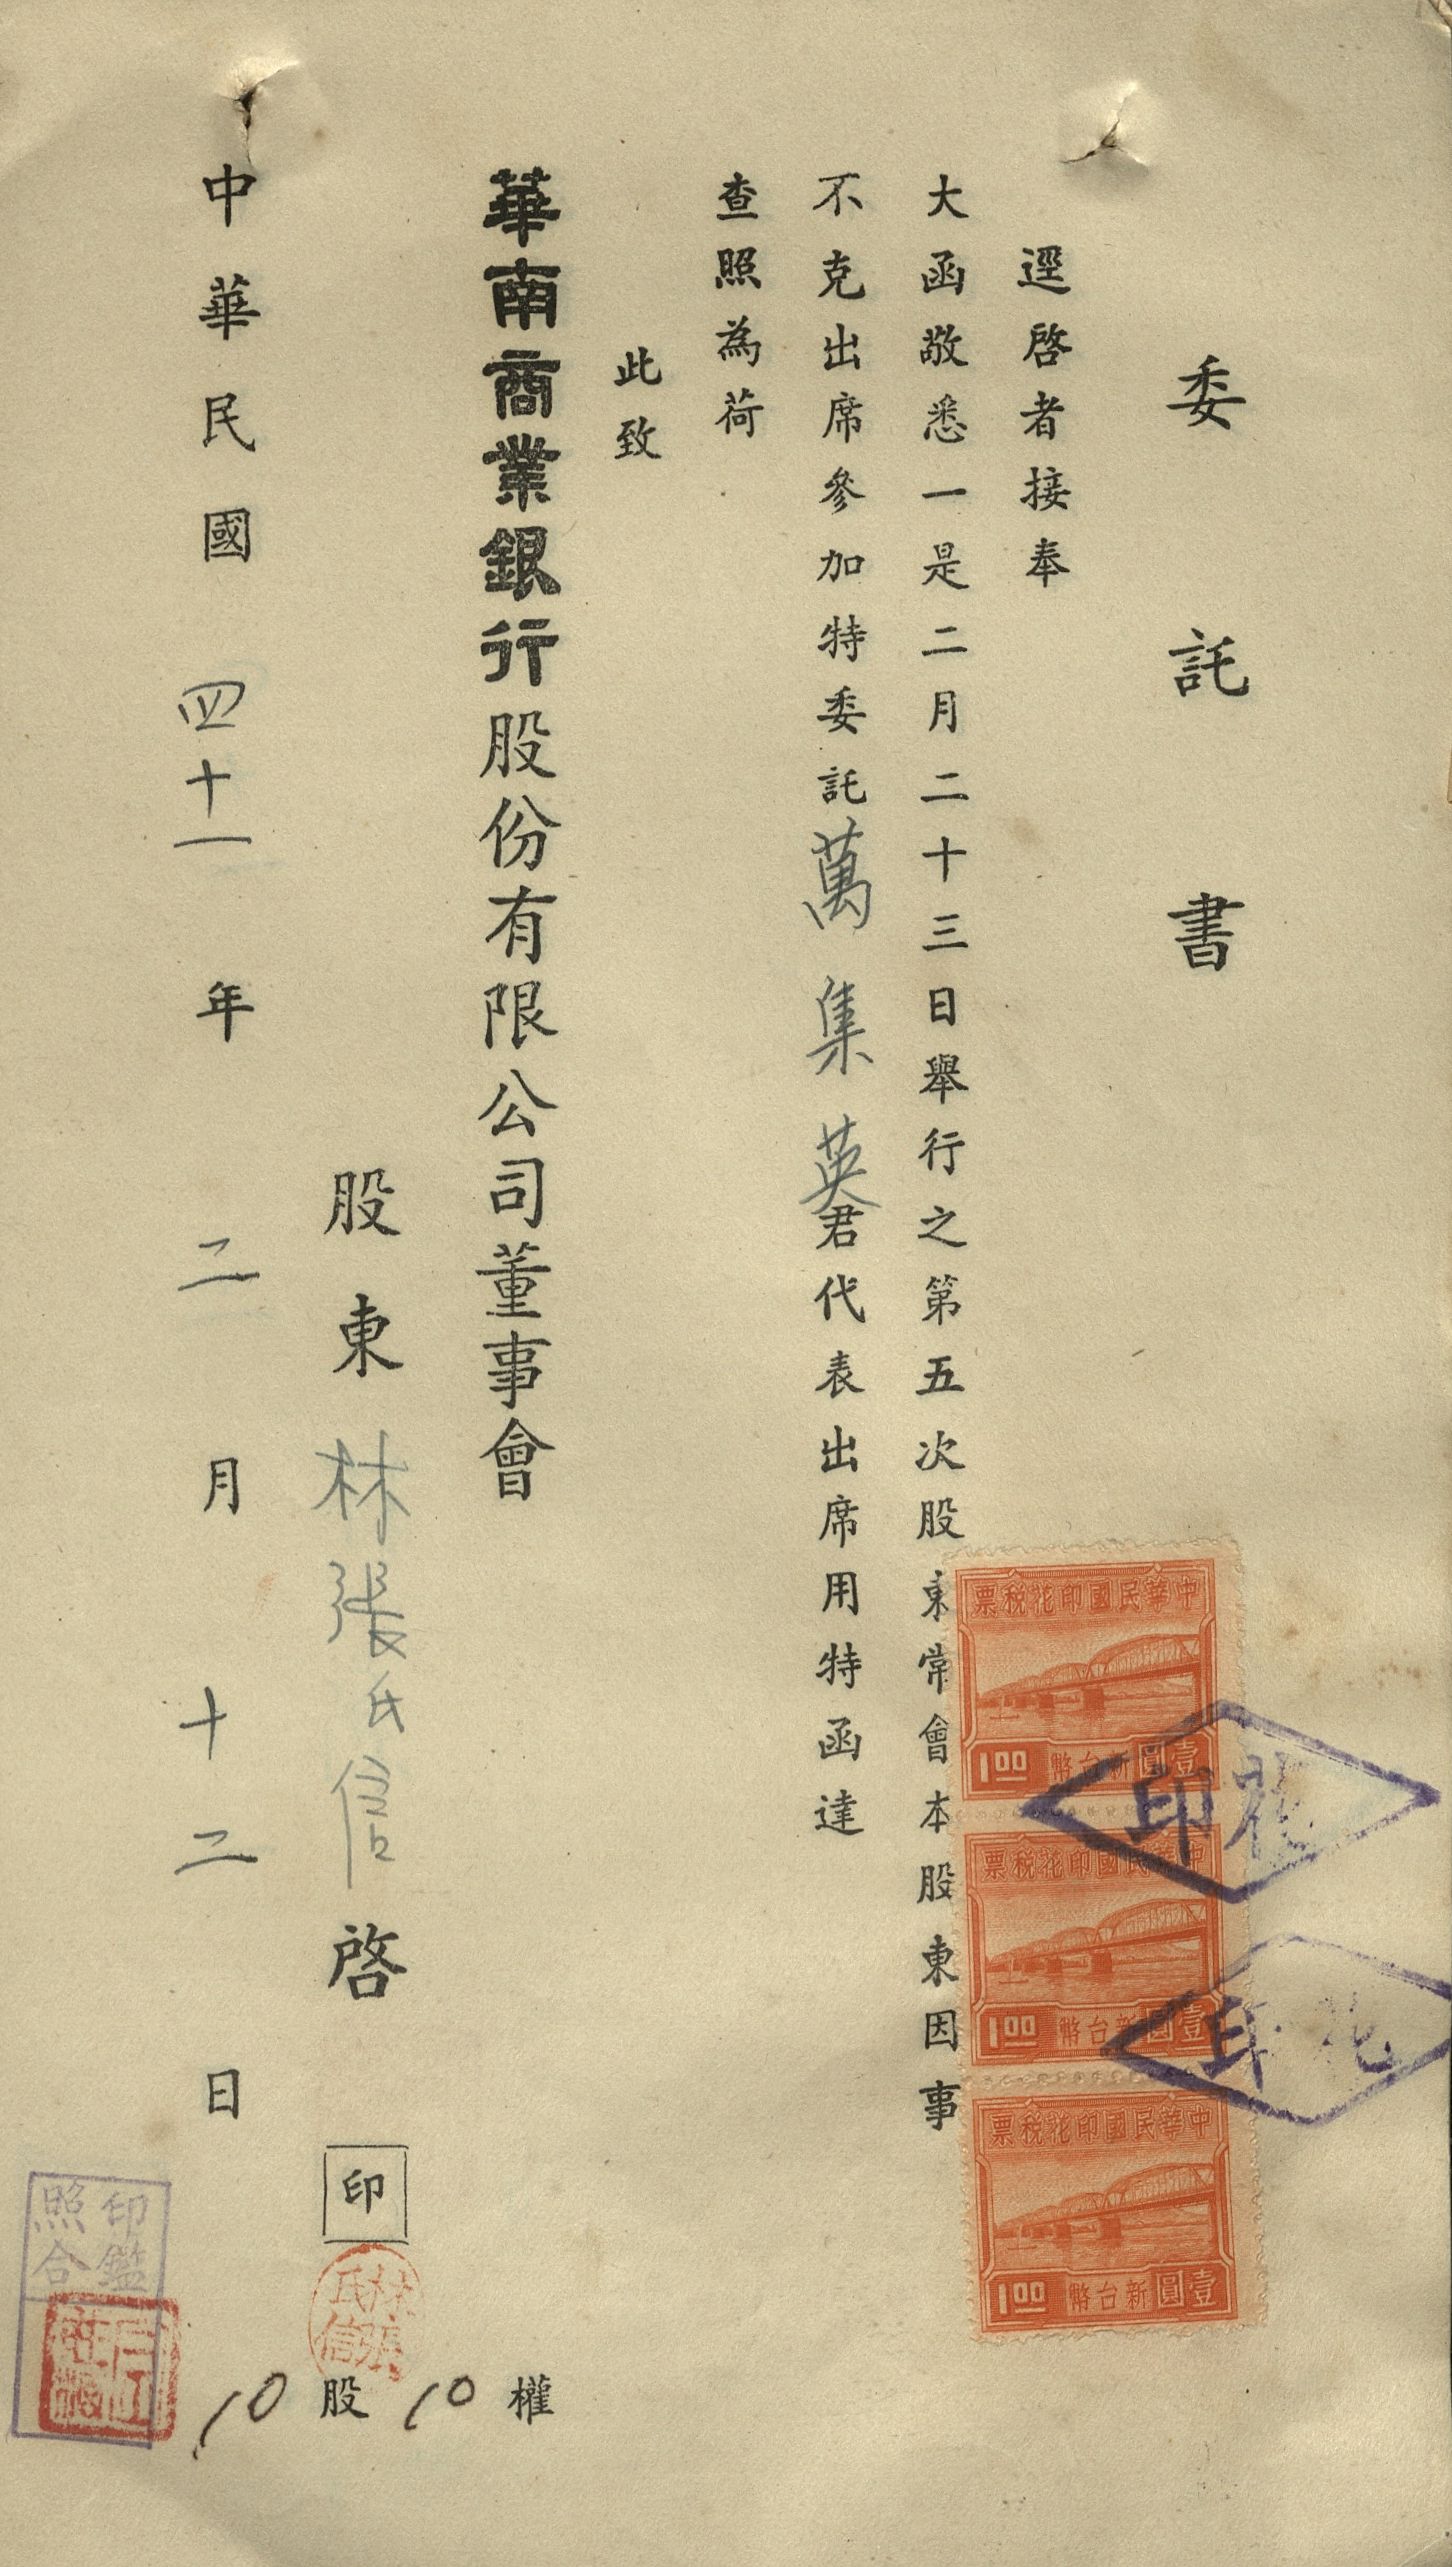 委託書
逕啓者接奉
大函敬悉一是二月二十三日舉行之第五次股東常會本股東因事
不克出席參加特委託萬集英君代表出席用特函達
查照為荷
此致
華南商業銀行股份有限公司董事會
股東林張氏信啓 印
中華民國四十一年二月十二日
權
10
股
10
中華民國印花稅票
壹圓新台幣 1.00
中華民國印花稅票
壹圓新台幣 1.00
中華民國印花稅票
壹圓新台幣 1.00
印花
印花
林張氏信
印鑑
照合